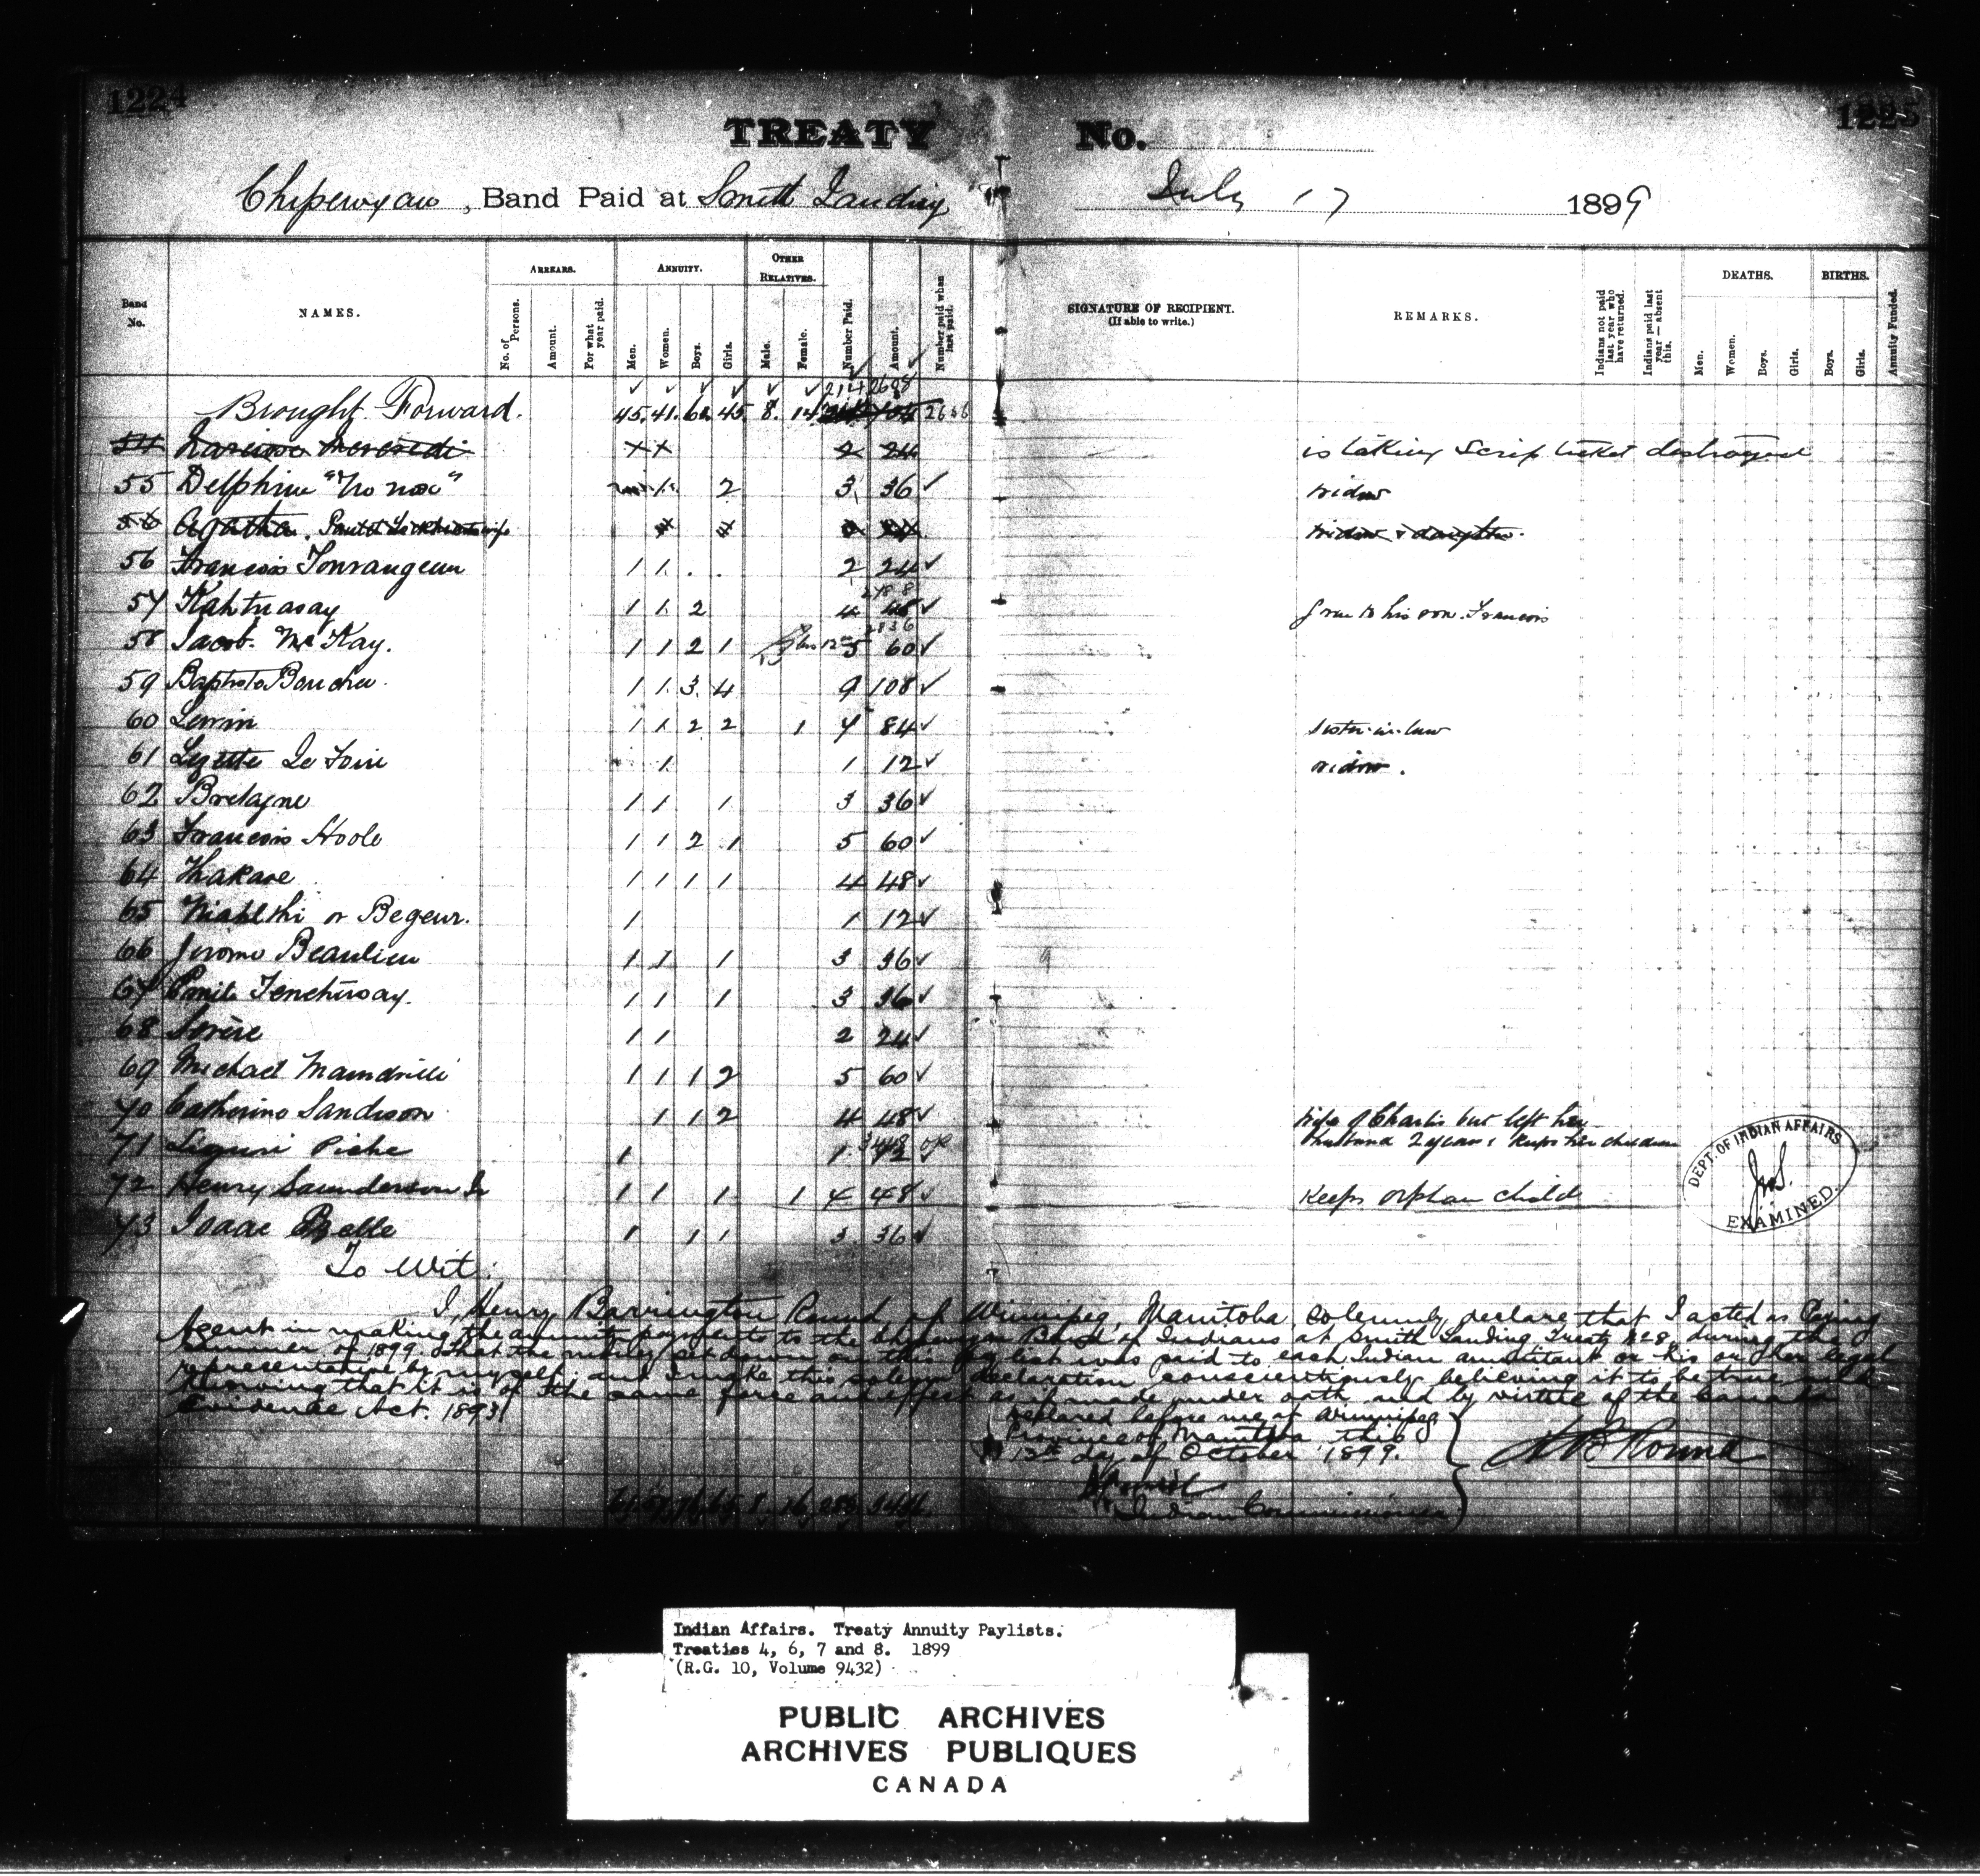 1224
1225
TREATY No.
Chipewyan, Band Paid at Smith Landing July 17 1899
Band No. NAMES. ARREARS. No. of Persons. Amount. For what year paid. ANNUITY. Men. Women. Boys. Girls. OTHER RELATIVES. Male. Female. Number Paid. Amount. Number paid when last paid. SIGNATURE OF RECIPIENT. (If able to write.) REMARKS. Indians not paid last year who have returned. Indians paid last year — absent this. DEATHS. Men. Women. Boys. Girls. BIRTHS. Boys. Girls. Annuity Funded.
214 2688
Brought Forward. 45. 41. 62. 45. 8. 14
54 2 24 is taking Scrip ticket destroyed
55 Delphine 1. 2 3 36 widow
Agatha widow & daughter.
56 Francois Tourangeau 1 1. 2 24
57 Kahtuasay 1 1. 2 4 48 to his son. Francois
58 Jacob. McKay. 1 1 2 1 5 60
59 Baptiste Boucher 1 1. 3. 4 9 108
60 1 1 2 2 1 7 84 sister-in-law
61 Lizette 1 1 12 widow.
62 Bretagne 1 1 1 3 36
63 Francois Hoole 1 1 2 1 5 60
64 Thakase 1 1 1 1 4 48
65 or Begeur. 1 1 12
66 Jerome Beaulieu 1 1 1 3 36
67 1 1 1 3 36
68 1 1 2 24
69 Michael Mamdrille 1 1 1 2 5 60
70 Catherine Sandison 1 1 2 4 48 wife of Charlie but left her
husband 2 years & keeps her children
71 Liguri Piche 1 1
72 Henry Saunderson Sr 1 1 1 1 4 48 Keeps orphan child
73 Isaac Belle 1 1 1 3 36
DEPT. OF INDIAN AFFAIRS
EXAMINED.
To Wit:
I, Henry Barrington Round, of Winnipeg, Manitoba, solemnly declare that I acted as Paying
Agent in making the annuity payments to the Chipewyan Band of Indians at Smith Landing Treaty No 8, during the
summer of 1899. That the money set down on this Pay list was paid to each Indian annuitant or his or her legal
representative by myself, and I make this solemn declaration conscientiously believing it to be true and
knowing that it is of the same force and effect as if made under oath and by virtue of the Canada
Evidence Act. 1893.
Declared before me at Winnipeg
Province of Manitoba this
13th day of October 1899.
H B Round
Indian Commissioner
Indian Affairs. Treaty Annuity Paylists.
Treaties 4, 6, 7 and 8. 1899
(R.G. 10, Volume 9432)
PUBLIC ARCHIVES
ARCHIVES PUBLIQUES
CANADA